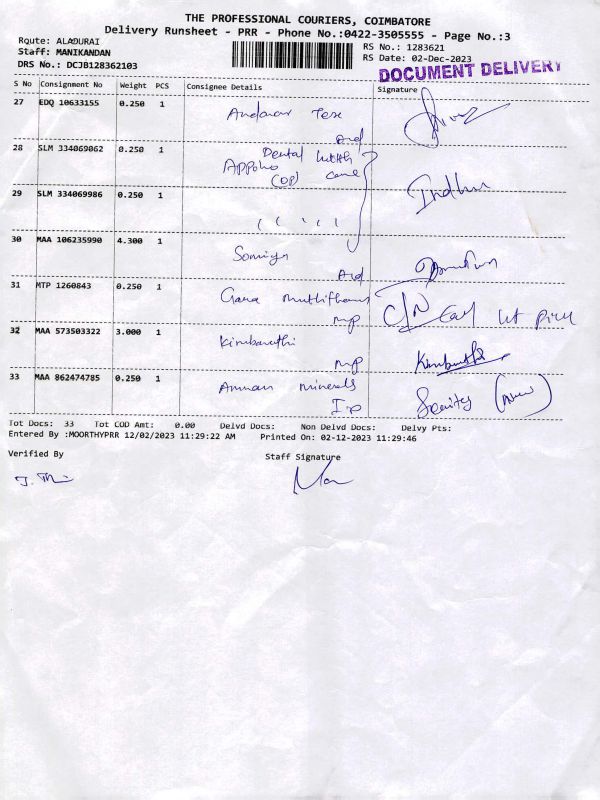 THE PROFESSIONAL COURIERS, COIMBATORE
Delivery Runsheet - PRR - Phone No.:0422-3505555 - Page No.:3
Route: ALADURAI
Staff: MANIKANDAN
DRS No.: DCJB128362103
RS No.: 1283621
RS Date: 02-Dec-2023
DOCUMENT DELIVERY
S No Consignment No Weight PCS Consignee Details Signature
27 EDQ 10633155 0.250 1 Andavar Tex
Ard
28 SLM 334069062 0.250 1 Dental
Appollo (OP) care
29 SLM 334069986 0.250 1 Indhu
30 MAA 106235990 4.300 1 Somiya
Ard
31 MTP 1260843 0.250 1 Gana C/N
mp
32 MAA 573503322 3.000 1 Kimbarathi
mp
33 MAA 862474785 0.250 1 Amman minerals Security
Ip
Tot Docs: 33 Tot COD Amt: 0.00 Delvd Docs: Non Delvd Docs: Delvy Pts:
Entered By :MOORTHYPRR 12/02/2023 11:29:22 AM Printed On: 02-12-2023 11:29:46
Verified By Staff Signature